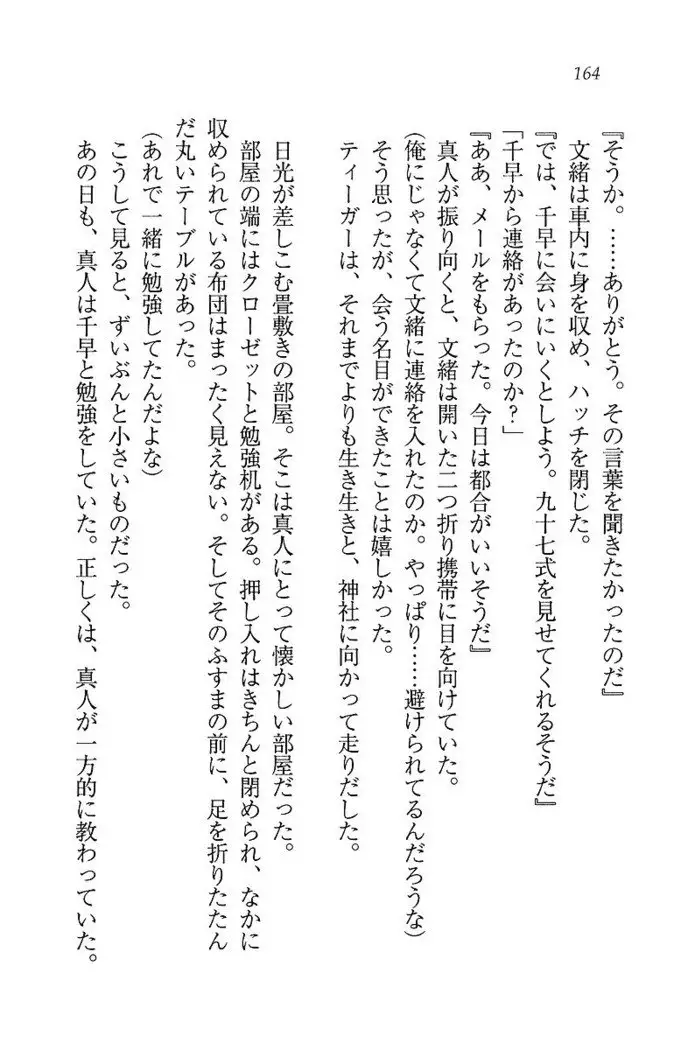 164
『そうか。……ありがとう。その言葉を聞きたかったのだ』
文緒は車内に身を収め、ハッチを閉じた。
『では、千早に会いにいくとしよう。九十七式を見せてくれるそうだ』
「千早から連絡があったのか？」
『ああ、メールをもらった。今日は都合がいいそうだ』
真人が振り向くと、文緒は開いた二つ折り携帯に目を向けていた。
(俺にじゃなくて文緒に連絡を入れたのか。やっぱり……避けられてるんだろうな)
そう思ったが、会う名目ができたことは嬉しかった。
ティーガーは、それまでよりも生き生きと、神社に向かって走りだした。
日光が差しこむ畳敷きの部屋。そこは真人にとって懐かしい部屋だった。
部屋の端にはクローゼットと勉強机がある。押し入れはきちんと閉められ、なかに
収められている布団はまったく見えない。そしてそのふすまの前に、足を折りたたん
だ丸いテーブルがあった。
(あれで一緒に勉強してたんだよな)
こうして見ると、ずいぶんと小さいものだった。
あの日も、真人は千早と勉強をしていた。正しくは、真人が一方的に教わっていた。